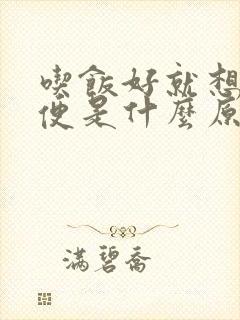 喫飯好就想
便是什麼原
滿碧喬